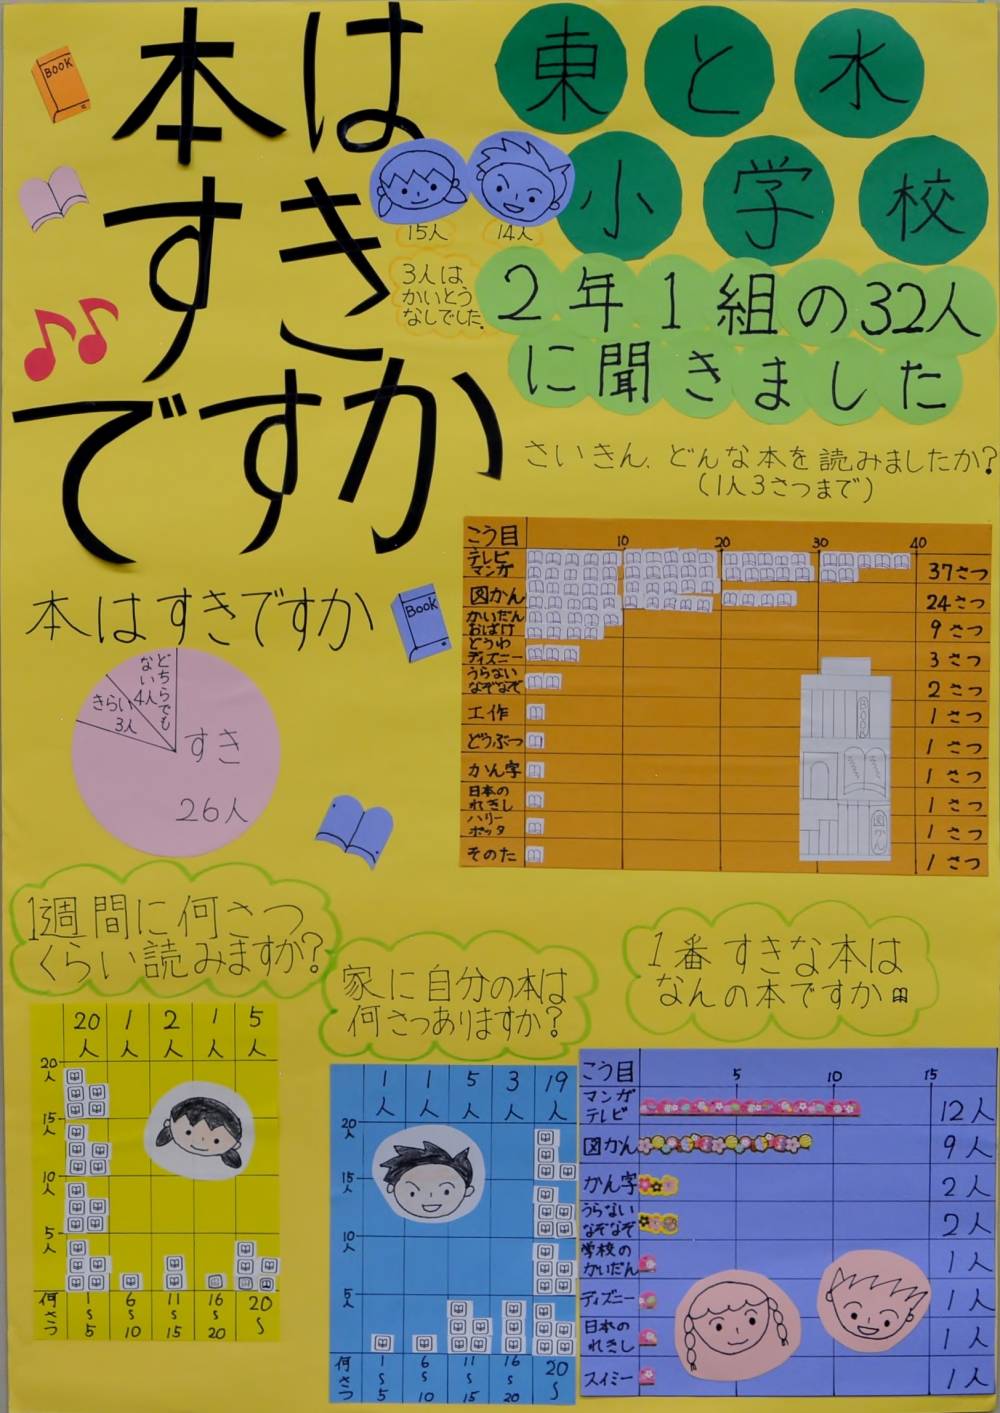 本は
すき
ですか
BOOK
東と水
小学校
15人 14人
3人は
かいとう
なしでした。
2年1組の32人
に聞きました
さいきん、どんな本を読みましたか?
(1人3さつまで)
こう目 10 20 30 40
テレビ
マンガ 37さつ
図かん 24さつ
かいだん
おばけ 9さつ
どうわ
ディズニー 3さつ
うらない
なぞなぞ 2さつ
工作 1さつ
どうぶつ 1さつ
かん字 1さつ
日本の
れきし 1さつ
ハリー
ポッタ 1さつ
そのた 1さつ
BOOK
図かん
本はすきですか
BOOK
どちらでも
ない4人
きらい
3人
すき
26人
1週間に何さつ
くらい読みますか?
20人 1人 2人 1人 5人
20人
15人
10人
5人
何さつ 1~5 6~10 11~15 16~20 20~
家に自分の本は
何さつありますか?
1人 1人 5人 3人 19人
20人
15人
10人
5人
何さつ 1~5 6~10 11~15 16~20 20~
1番すきな本は
なんの本ですか
こう目 5 10 15
マンガ
テレビ 12人
図かん 9人
かん字 2人
うらない
なぞなぞ 2人
学校の
かいだん 1人
ディズニー 1人
日本の
れきし 1人
スイミー 1人